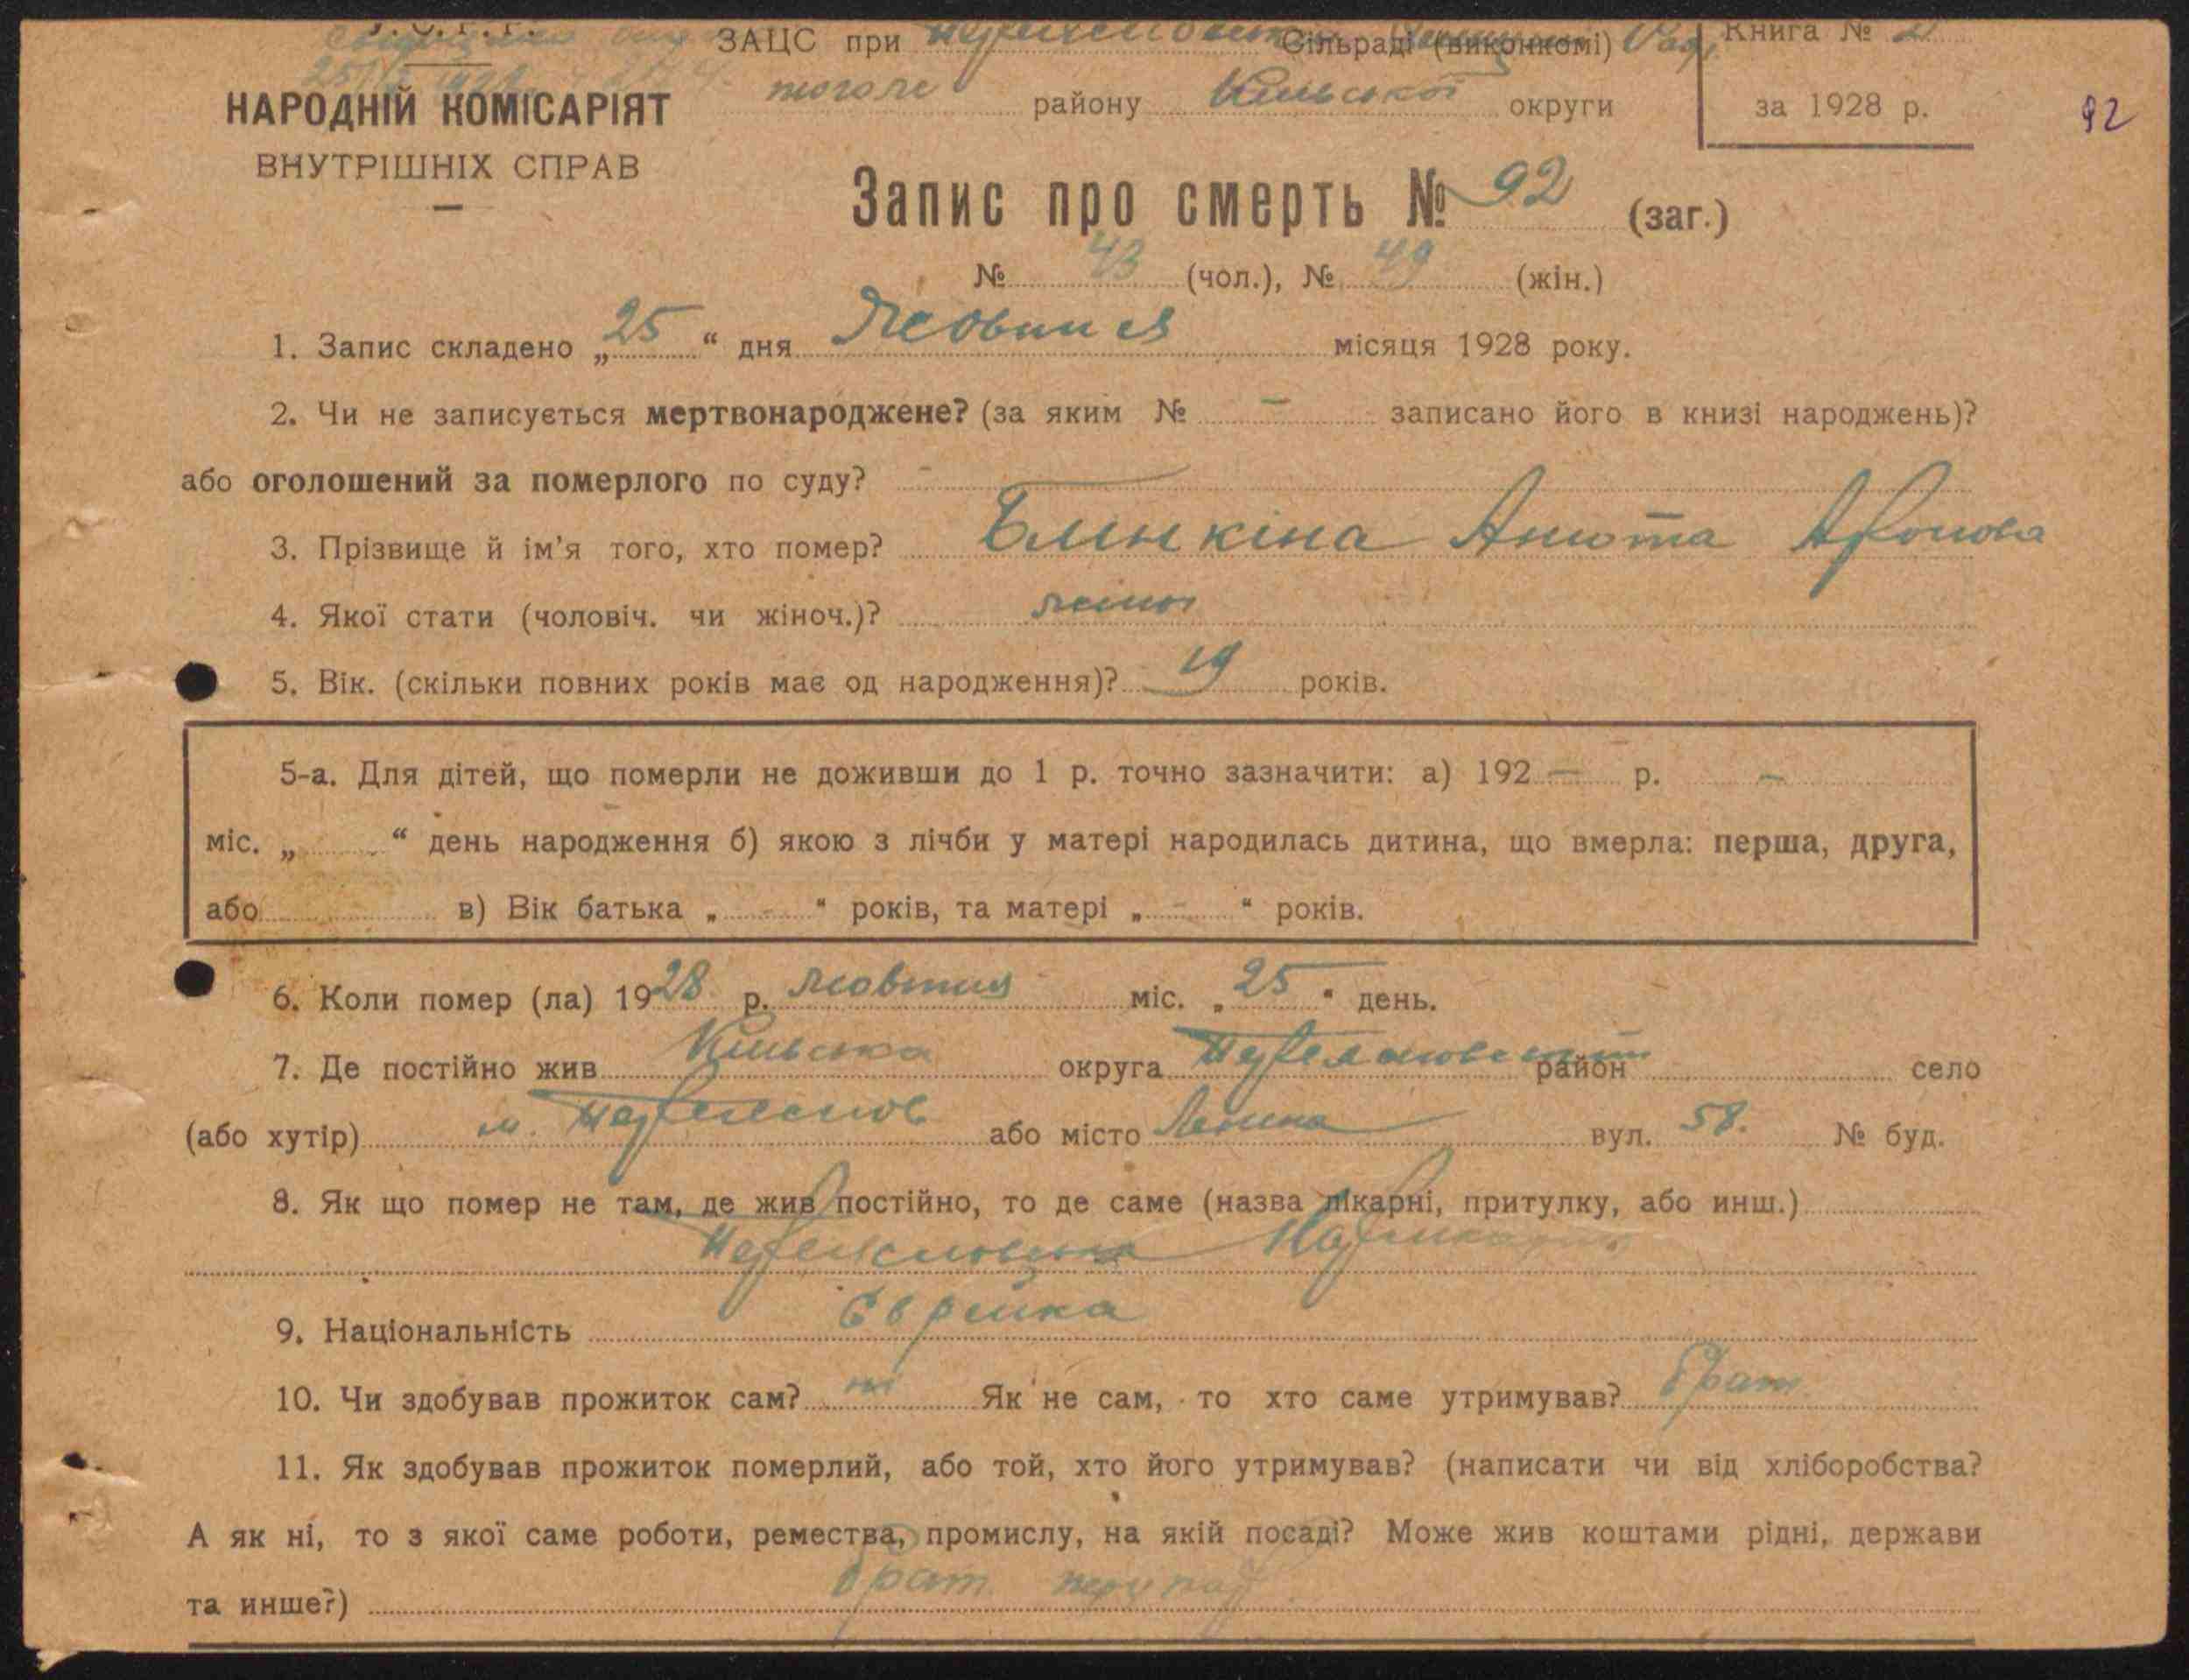 ЗАЦС при Сільраді (виконкомі) Книга № 2
НАРОДНІЙ КОМІСАРІЯТ
ВНУТРІШНІХ СПРАВ
того ж району Київської округи за 1928 р. 92
Запис про смерть № 92 (заг.)
№ 43 (чол.), № 49 (жін.)
1. Запис складено „25“ дня Жовтня місяця 1928 року.
2. Чи не записується мертвонароджене? (за яким № – записано його в книзі народжень)?
або оголошений за померлого по суду? –
3. Прізвище й ім'я того, хто помер? Блінкіна Анюта Аронова
4. Якої стати (чоловіч. чи жіноч.)? жіноч
5. Вік. (скільки повних років має од народження)? 19 років.
5-а. Для дітей, що померли не доживши до 1 р. точно зазначити: а) 192 — р. –
міс. „ “ день народження б) якою з лічби у матері народилась дитина, що вмерла: перша, друга,
або в) Вік батька „ - “ років, та матері „ - “ років.
6. Коли помер (ла) 1928 р. жовтня міс. „25“ день.
7. Де постійно жив Київська округа Переяславський район село
(або хутір) м. Переяслов або місто Леніна вул. 58. № буд.
8. Як що помер не там, де жив постійно, то де саме (назва лікарні, притулку, або инш.)
Переяславська
9. Національність Єврейка
10. Чи здобував прожиток сам? ні Як не сам, то хто саме утримував? брат
11. Як здобував прожиток померлий, або той, хто його утримував? (написати чи від хліборобства?
А як ні, то з якої саме роботи, ремества, промислу, на якій посаді? Може жив коштами рідні, держави
та инше?) брат